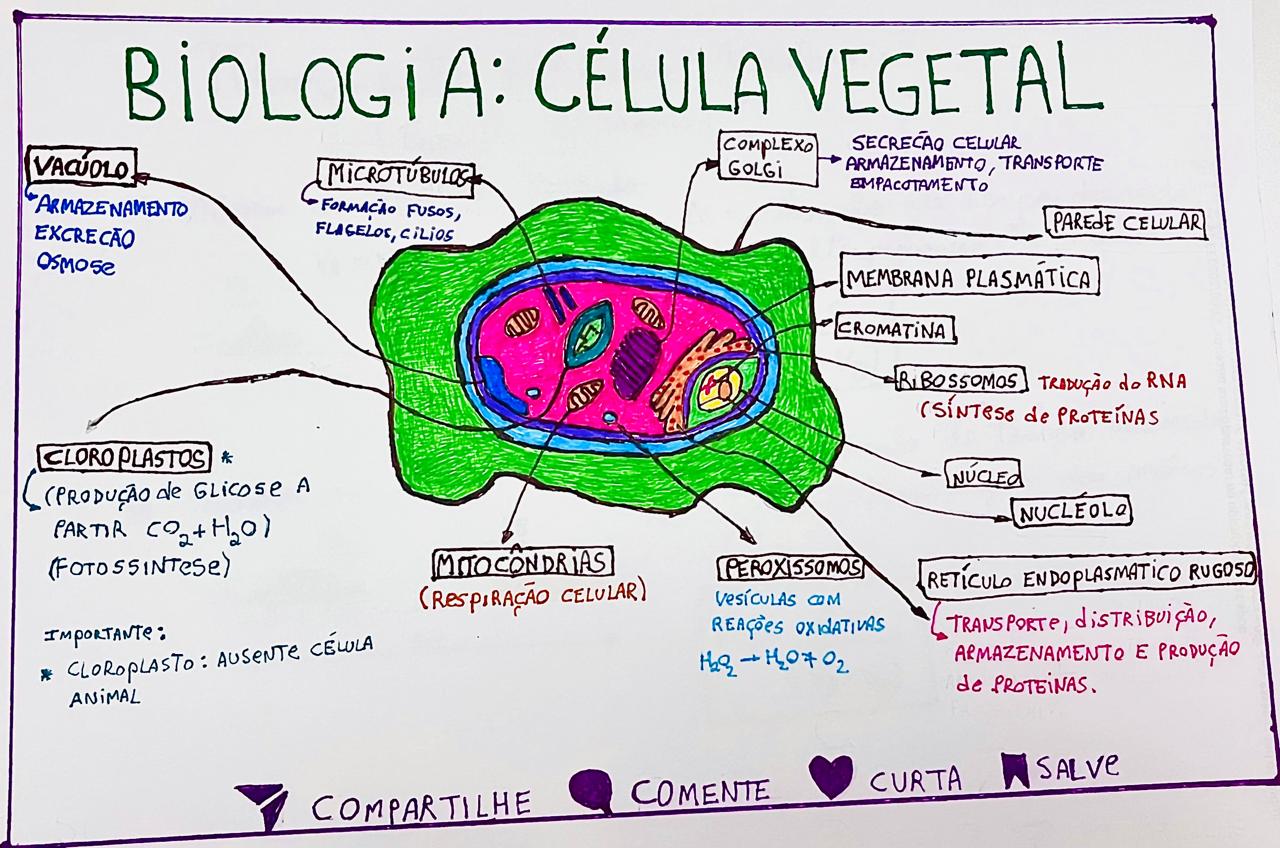 BIOLOGIA: CÉLULA VEGETAL
VACÚOLO
ARMAZENAMENTO
EXCREÇÃO
OSMOSE
MICROTÚBULOS
FORMAÇÃO FUSOS,
FLAGELOS, CILIOS
COMPLEXO
GOLGI
SECREÇÃO CELULAR
ARMAZENAMENTO, TRANSPORTE
EMPACOTAMENTO
PAREDE CELULAR
MEMBRANA PLASMÁTICA
CROMATINA
RIBOSSOMOS
TRADUÇÃO do RNA
(SÍNTESE de PROTEÍNAS
NÚCLEO
NUCLÉOLO
RETÍCULO ENDOPLASMÁTICO RUGOSO
TRANSPORTE, dISTRIBUIÇÃO,
ARMAZENAMENTO E PRODUÇÃO
de PROTEINAS.
CLOROPLASTOS *
(PRODUÇÃO de GLICOSE A
PARTIR CO₂+H₂O)
(FOTOSSINTESE)
MITOCÔNDRIAS
(RESPIRAÇÃO CELULAR)
PEROXISSOMOS
VESÍCULAS COM
REAÇÕES OXIDATIVAS
H₂O₂ → H₂O + O₂
IMPORTANTE:
* CLOROPLASTO: AUSENTE CÉLULA
ANIMAL
COMPARTILHE
COMENTE
CURTA
SALVE